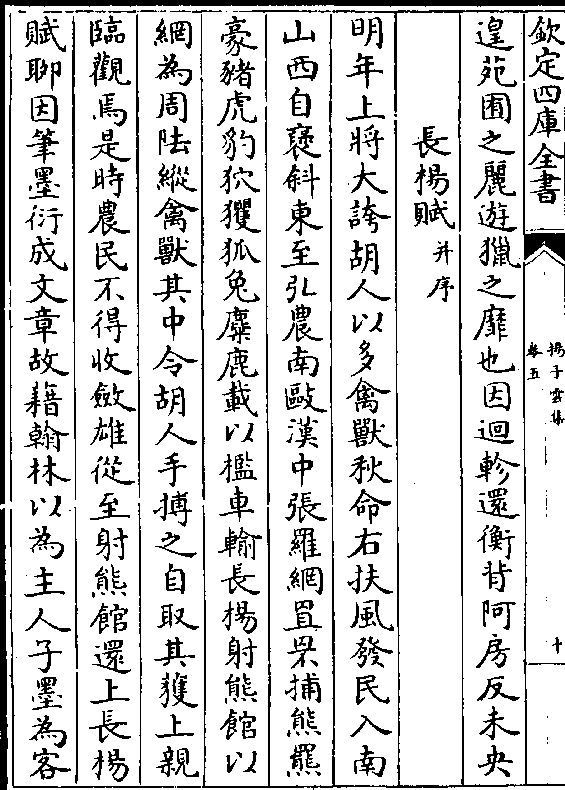 欽定四庫全書
揚子雲集
卷五
十
遑苑囿之麗遊獵之靡也因迴軫還衡背阿房反未央
長楊賦并序
明年上將大誇胡人以多禽獸秋命右扶風發民入南
山西自褒斜東至弘農南敺漢中張羅網罝罘捕熊羆
豪豬虎豹狖玃狐兔麋鹿載以檻車輸長楊射熊館以
網為周阹縱禽獸其中令胡人手搏之自取其獲上親
臨觀焉是時農民不得收斂雄從至射熊館還上長楊
賦聊因筆墨衍成文章故藉翰林以為主人子墨為客